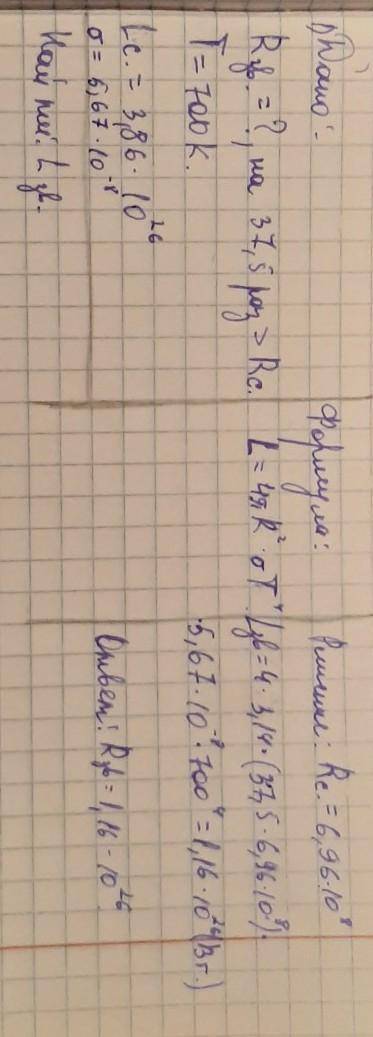 1) Дано:
Rзв. = ?, на 37,5 раз > Rс.
T = 700 К.
Lс. = 3,86 · 10²⁶
σ = 5,67 · 10⁻⁸
Найти: Lзв.
Формула:
L = 4πR² · σT⁴
Решение: Rс. = 6,96 · 10⁸
Lзв = 4 · 3,14 · (37,5 · 6,96 · 10⁸) ·
· 5,67 · 10⁻⁸ · 700⁴ = 1,16 · 10²⁶ (Вт.)
Ответ: Rзв = 1,16 · 10²⁶